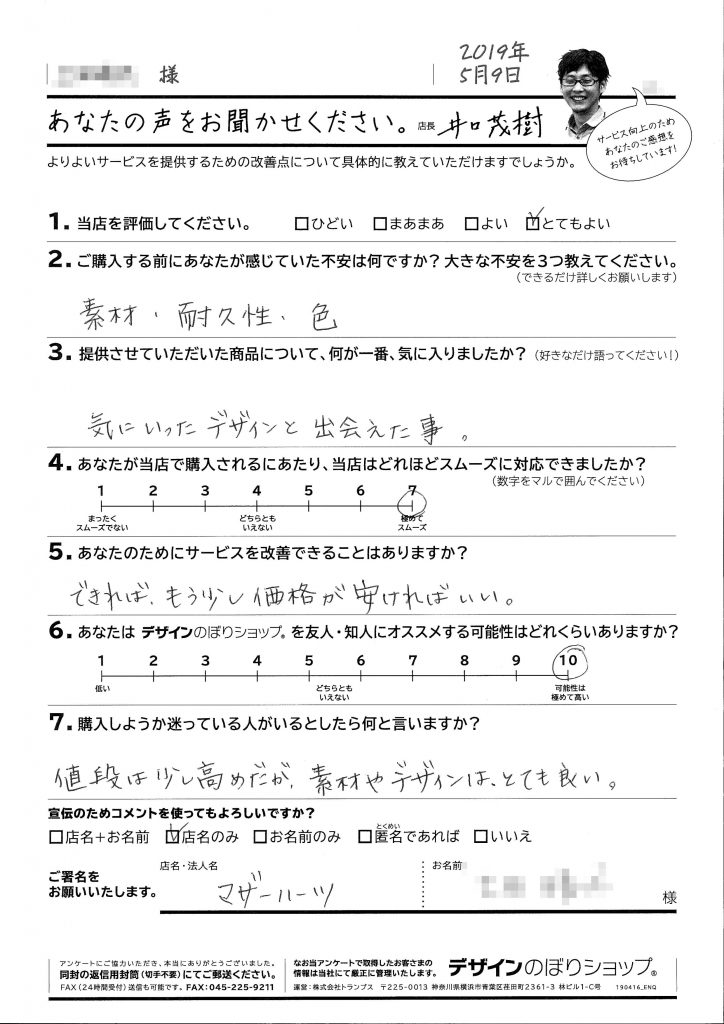 様
2019年
5月9日
あなたの声をお聞かせください。 店長 井口茂樹
サービス向上のため
あなたのご感想を
お待ちしています!
よりよいサービスを提供するための改善点について具体的に教えていただけますでしょうか。
1. 当店を評価してください。 □ひどい □まあまあ □よい ☑とてもよい
2. ご購入する前にあなたが感じていた不安は何ですか? 大きな不安を3つ教えてください。
(できるだけ詳しくお願いします)
素材・耐久性・色
3. 提供させていただいた商品について、何が一番、気に入りましたか? (好きなだけ語ってください!)
気にいったデザインと出会えた事。
4. あなたが当店で購入されるにあたり、当店はどれほどスムーズに対応できましたか?
(数字をマルで囲んでください)
1 2 3 4 5 6 7
まったく どちらとも 極めて
スムーズでない いえない スムーズ
5. あなたのためにサービスを改善できることはありますか?
できれば、もう少し価格が安ければいい。
6. あなたは デザインのぼりショップ® を友人・知人にオススメする可能性はどれくらいありますか?
1 2 3 4 5 6 7 8 9 10
低い どちらとも 可能性は
いえない 極めて高い
7. 購入しようか迷っている人がいるとしたら何と言いますか?
値段は少し高めだが、素材やデザインは、とても良い。
宣伝のためコメントを使ってもよろしいですか?
とくめい
□店名+お名前 ☑店名のみ □お名前のみ □匿名であれば □いいえ
ご署名を
お願いいたします。
店名・法人名 お名前
マザーハーツ 様
アンケートにご協力いただき、本当にありがとうございました。
同封の返信用封筒(切手不要)にてご郵送ください。
FAX(24時間受付)送信も可能です。 FAX:045-225-9211
なお当アンケートで取得したお客さまの
情報は当社にて厳正に管理いたします。
デザインのぼりショップ®
運営:株式会社トランプス 〒225-0013 神奈川県横浜市青葉区荏田町2361-3 林ビル1-C号 190416_ENQ